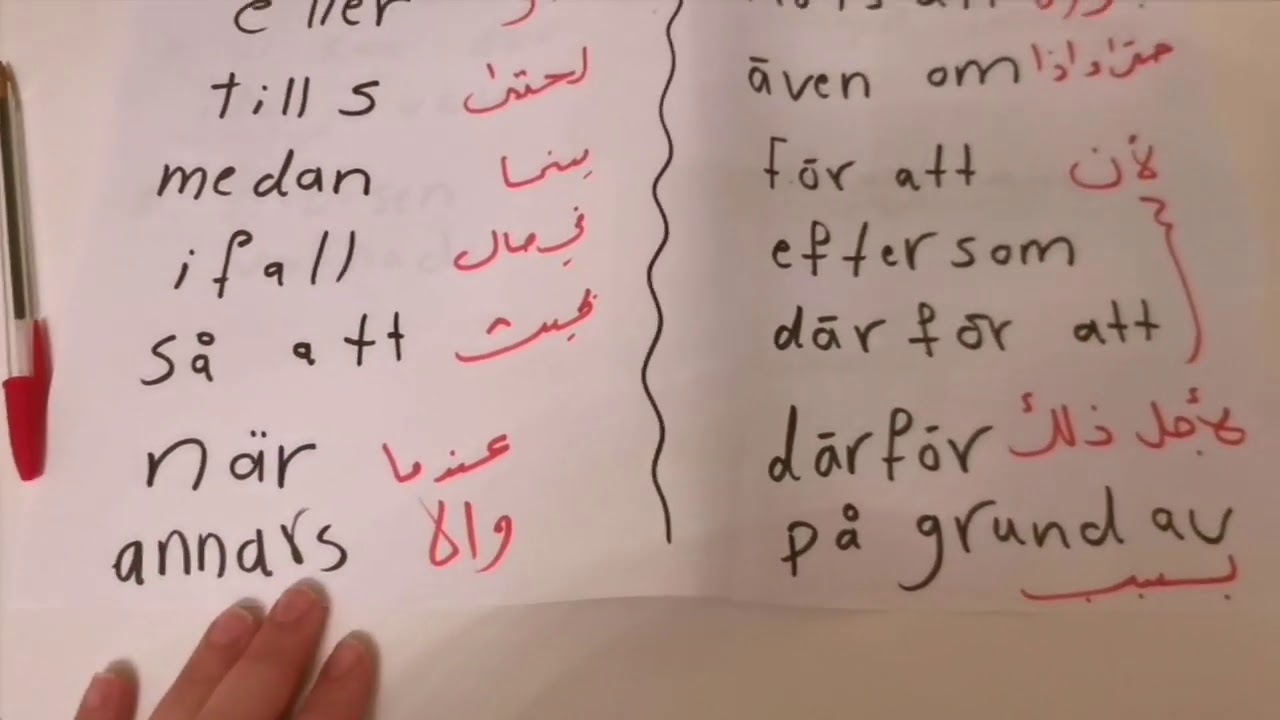 eller
tills لحتى
medan بينما
ifall في حال
så att بحيث
när عندما
annars والا
även om حتى واذا
för att لأن
eftersom
därför att
därför لأجل ذلك
på grund av
بسبب